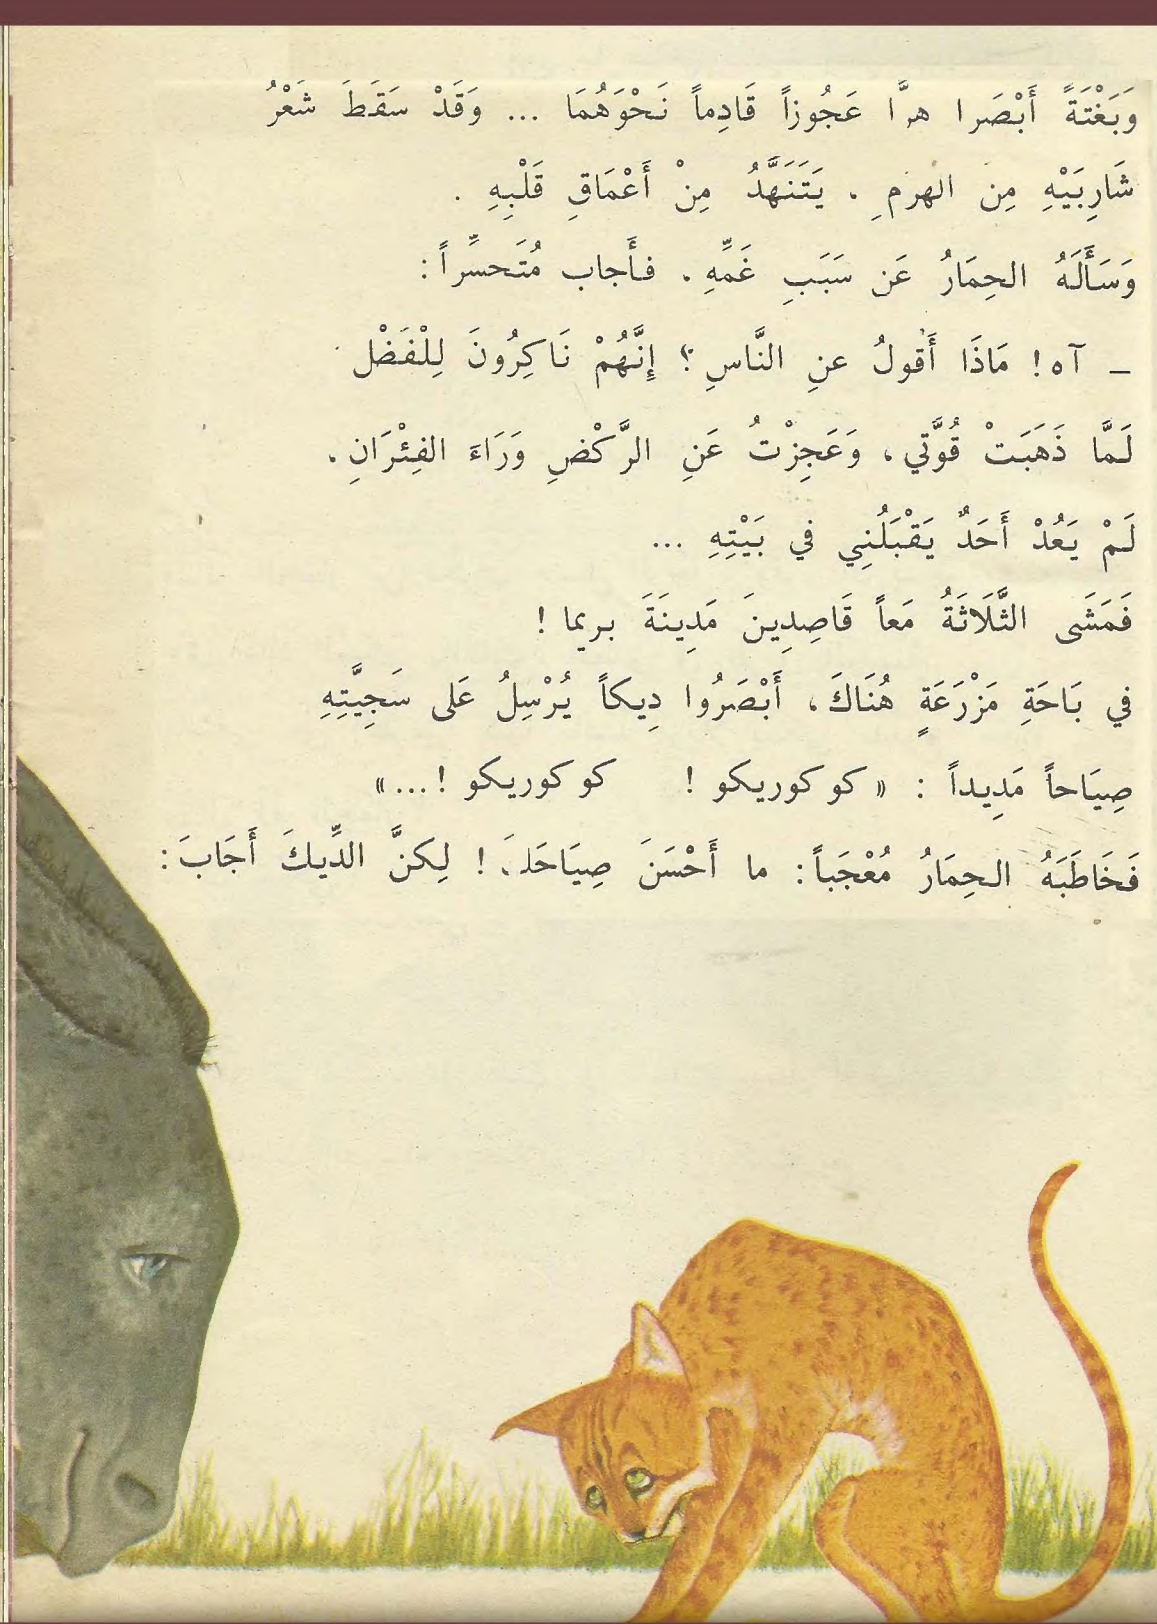 وَبَغْتَةً أَبْصَرا هرَّا عَجُوزاً قَادِماً نَحْوَهُمَا ... وَقَدْ سَقَطَ شَعْرُ
شَارِبَيْهِ مِن الهرمِ . يَتَنَهَّدُ مِنْ أَعْمَاقِ قَلْبِهِ .
وَسَأَلَهُ الحِمَارُ عَن سَبَبِ غَمِّهِ . فأَجاب مُتَحسِّراً :
– آه ! مَاذَا أَقُولُ عنِ النَّاسِ ؟ إِنَّهُمْ نَاكِرُونَ لِلْفَضْل .
لَمَّا ذَهَبَتْ قُوَّتِي ، وَعَجِزْتُ عَنِ الرَّكْضِ وَرَاءَ الفِئْرَانِ .
لَمْ يَعُدْ أَحَدٌ يَقْبَلُنِي في بَيْتِهِ ...
فَمَشَى الثَّلَاثَةُ مَعاً قَاصِدِينَ مَدِينَةَ بريما !
في بَاحَةِ مَزْرَعَةٍ هُنَاكَ ، أَبْصَرُوا دِيكاً يُرْسِلُ عَلى سَجِيَّتِهِ
صِيَاحاً مَدِيداً : « كوكوريكو ! كوكوريكو ! ... »
فَخَاطَبَهُ الحِمَارُ مُعْجَباً : ما أَحْسَنَ صِيَاحَكَ ! لِكنَّ الدِّيكَ أَجَابَ :